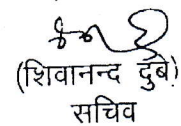 (शिवानन्द दुबे)
सचिव